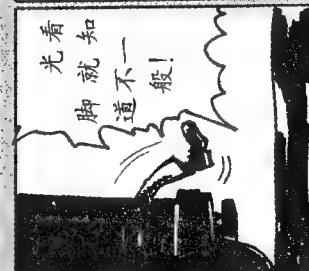 光看
脚就知
道不一
般!